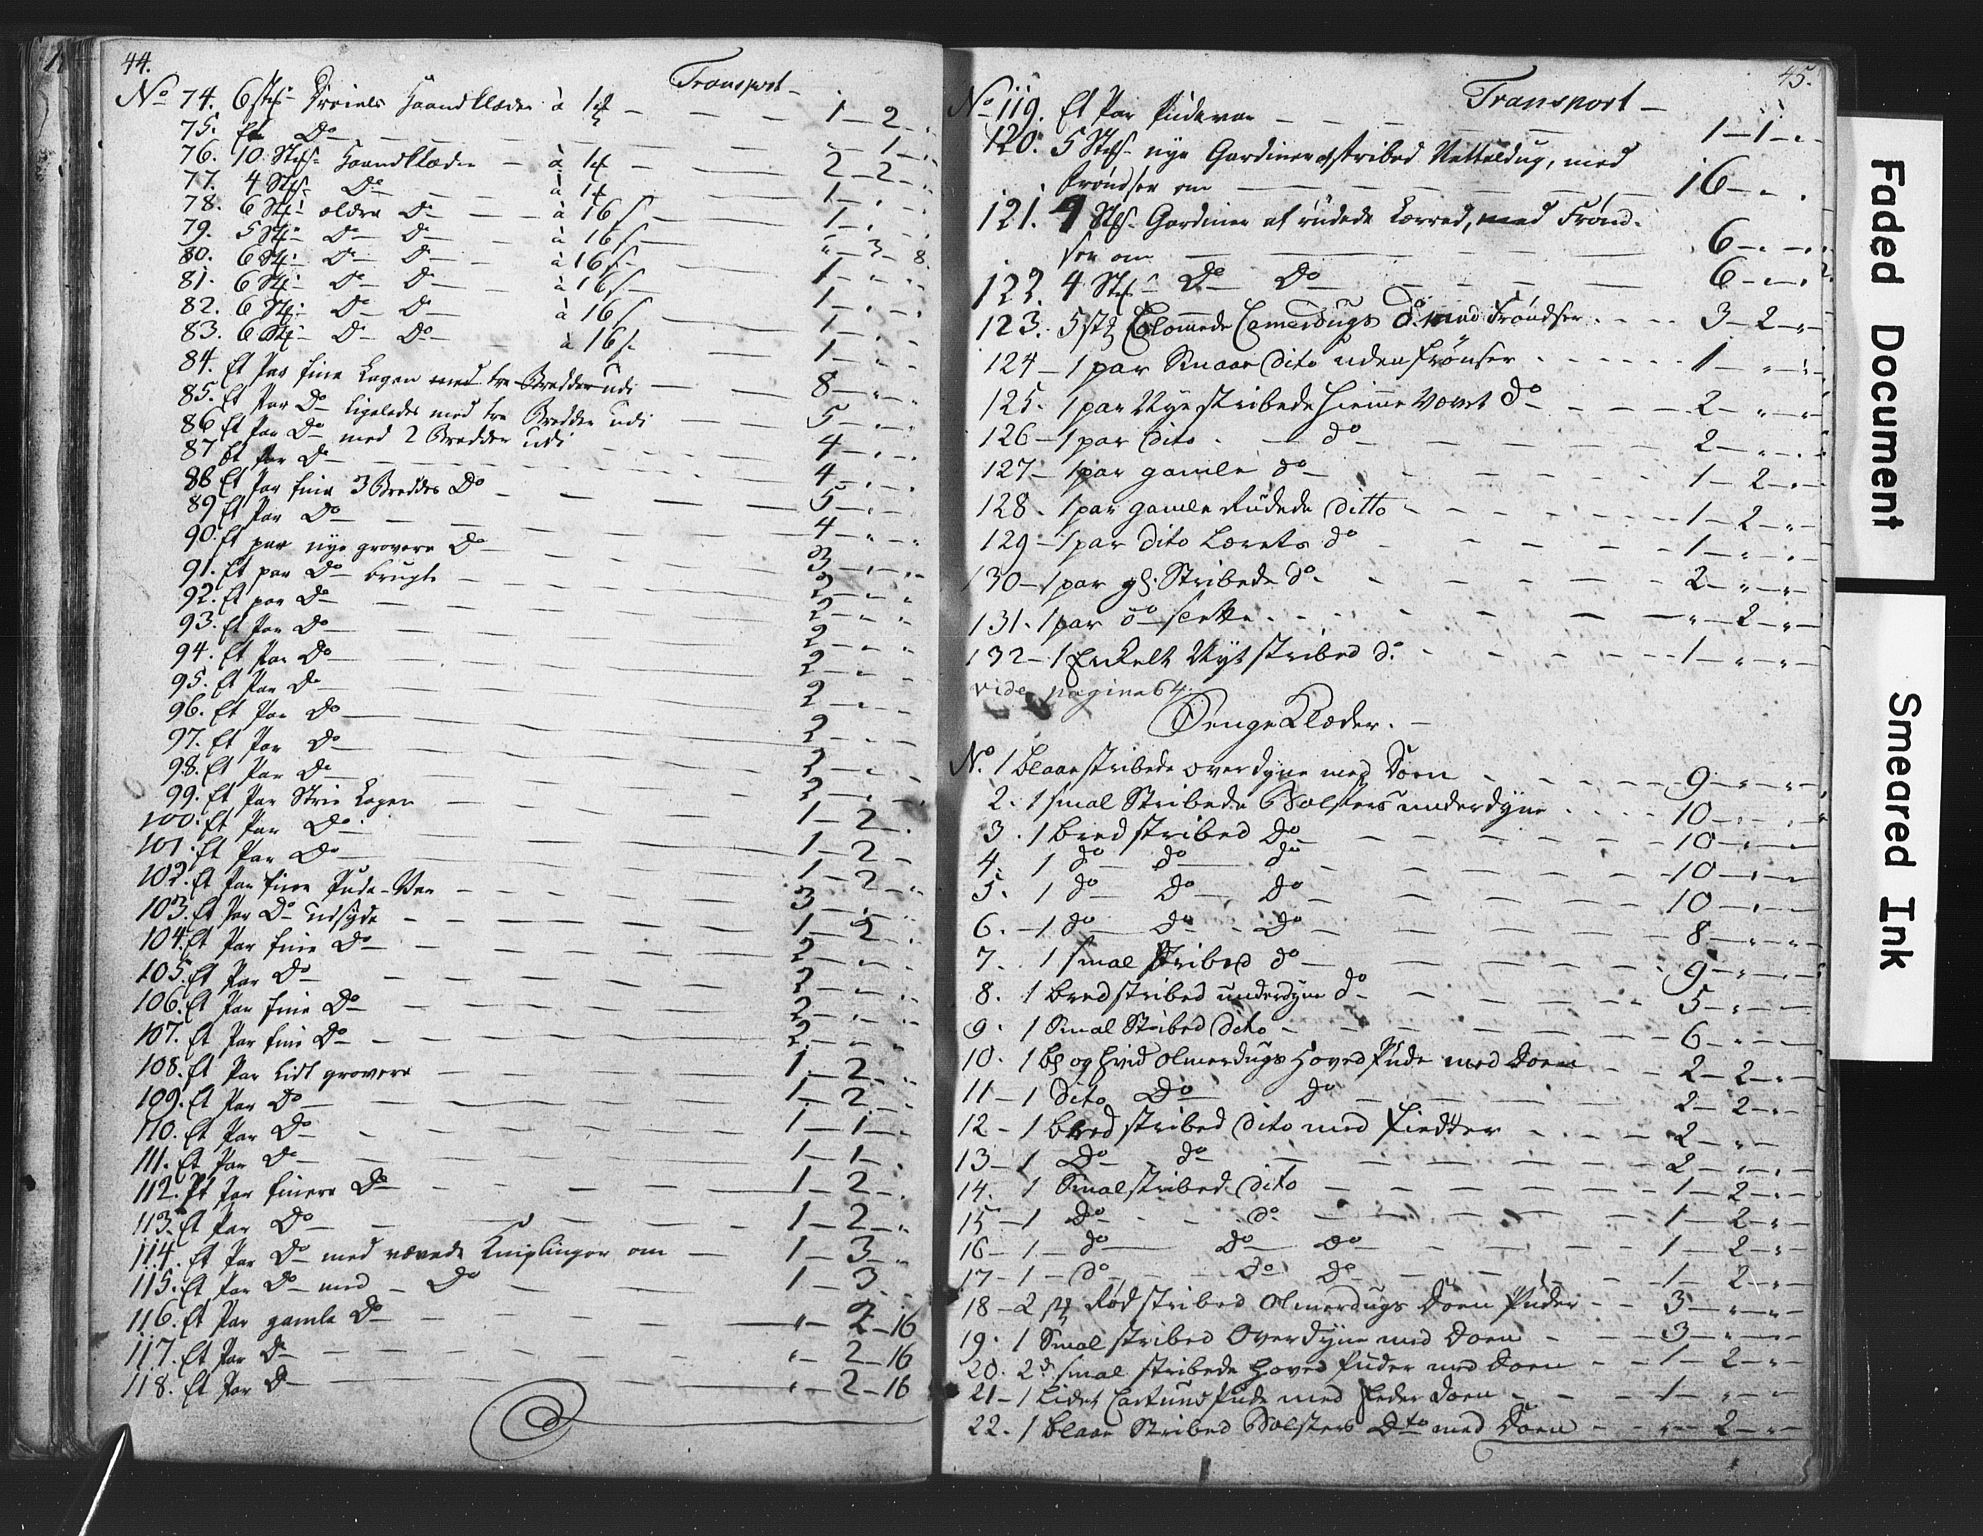 44.
Transport
No 74. 6 stk Dreiels Haandklæder à 1 — 1 — 2 —
75. Et Do — 1 —
76. 10 Stk Haandklæder — à 1 — 2 — 2 —
77. 4 Stk Do — à 1 — 1 —
78. 6 Stk ældre Do — à 16 s — 1 —
79. 5 Stk Do Do — à 16 s — „ — 3 — 8.
80. 6 Stk Do Do — à 16 s — 1 —
81. 6 Stk Do Do — à 16 s — 1 —
82. 6 Stk Do Do — à 16 s — 1 —
83. 6 Stk Do Do — à 16 s — 1 —
84. Et Par fine Lagen med tre Bredder udi — 8 —
85. Et Par Do ligeledes med tre Bredder udi — 5 —
86 Et Par Do med 2 Bredder udi — 4 —
87 Et Par Do — 4 —
88 Et Par fine 3 Bredder Do — 5 —
89 Et Par Do — 4 —
90. Et par nye grovere Do — 3 —
91. Et par Do brugte — 2 —
92. Et par Do — 2 —
93. Et Par Do — 2 —
94. Et Par Do — 2 —
95. Et Par Do — 2 —
96. Et Par Do — 2 —
97. Et Par Do — 2 —
98. Et Par Do — 2 —
99. Et Par Strie Lagen — 1 — 2 —
100. Et Par Do — 1 — 2 —
101. Et Par Do — 1 — 2 —
102. Et Par fine Pude-Var — 3 —
103. Et Par Do udsyde — 1 — 2 —
104. Et Par fine Do — 2 —
105. Et Par Do — 2 —
106. Et Par fine Do — 2 —
107. Et Par fine Do — 2 —
108. Et Par lidt grovere — 1 — 2 —
109. Et Par Do — 1 — 2 —
110. Et Par Do — 1 — 1 —
111. Et Par Do — 1 — 1 —
112. Et Par finere Do — 1 — 2 —
113. Et Par Do — 1 — 2 —
114. Et Par Do med vævede Kniplinger om — 1 — 3 —
115. Et Par Do med Do — 1 — 3
116. Et Par gamle Do — „ — 2 — 16
117. Et Par Do — „ — 2 — 16
118. Et Par Do — „ — 2 — 16
45.
Transport —
No 119. Et Par Pudevar — 1 — 1 —
120. 5 Stk nye Gardiner af stribed Netteldug, med
Frøndser om — 16 —
121. 4 Stk Gardiner af rudede Lærred, med Frønd-
ser om — 6 —
122. 4 Stk Do Do — 6 —
123. 5 stk Blomede Cemerdugs do med Frøndser — 3 — 2 —
124 — 1 par Smaae Dito uden Frønser — 1 —
125. 1 par Nye stribede Hiemme Vævet do — 2 —
126 — 1 par Dito do — 2 —
127 — 1 par gamle do — 1 — 2 —
128. 1 par gamle Rudede Ditto — 1 — 2 —
129 — 1 par Dito Lærets do — 1 —
130 — 1 par gl. Stribede do — 2 —
131. 1 par do slette — „ — 2 —
132 — 1 Enkelt Nyt stribed do — 1 —
vide pagina 64.
Senge Klæder.
No. 1 blaae stribede overdyne med Doen — 9 —
2. 1 smal Stribede Bolsters underdyne — 10 —
3. 1 bred stribed Do — 10 —
4. 1 do do do — 10 —
5. 1 do Do Do — 10 —
6. — 1 do Do Do — 8 —
7. 1 smal stribed do — 9 —
8. 1 bred stribed underdyne do — 5 —
9. 1 Smal Stribed Dito — 6 —
10. 1 bl og hvid Olmerdugs Hoved Pude med Doen — 2 — 2 —
11 — 1 Dito Do Do — 2 — 2 —
12 — 1 bred stribed Dito med Fiedder — 2 —
13 — 1 Do do — 2 —
14. 1 Smal stribed Dito — 1 — 2 —
15 — 1 Do do — 1 — 2 —
16 — 1 — do Do Do — 1 — 2 —
17 — 1 — do do Do — 1 — 2 —
18 — 2 stk Rød stribed Olmerdugs Doen Puder — 3 —
19. 1 Smal stribed Overdyne med Doen — 3 —
20. 2de smal stribede Hoved Puder med Doen — 1 — 2 —
21 — 1 Lidet Cartuns Pude med Feder Doen — 1 —
22. 1 blaae Stribed Bolsters Dto med Doen — „ — 2 —
Faded Document
Smeared Ink